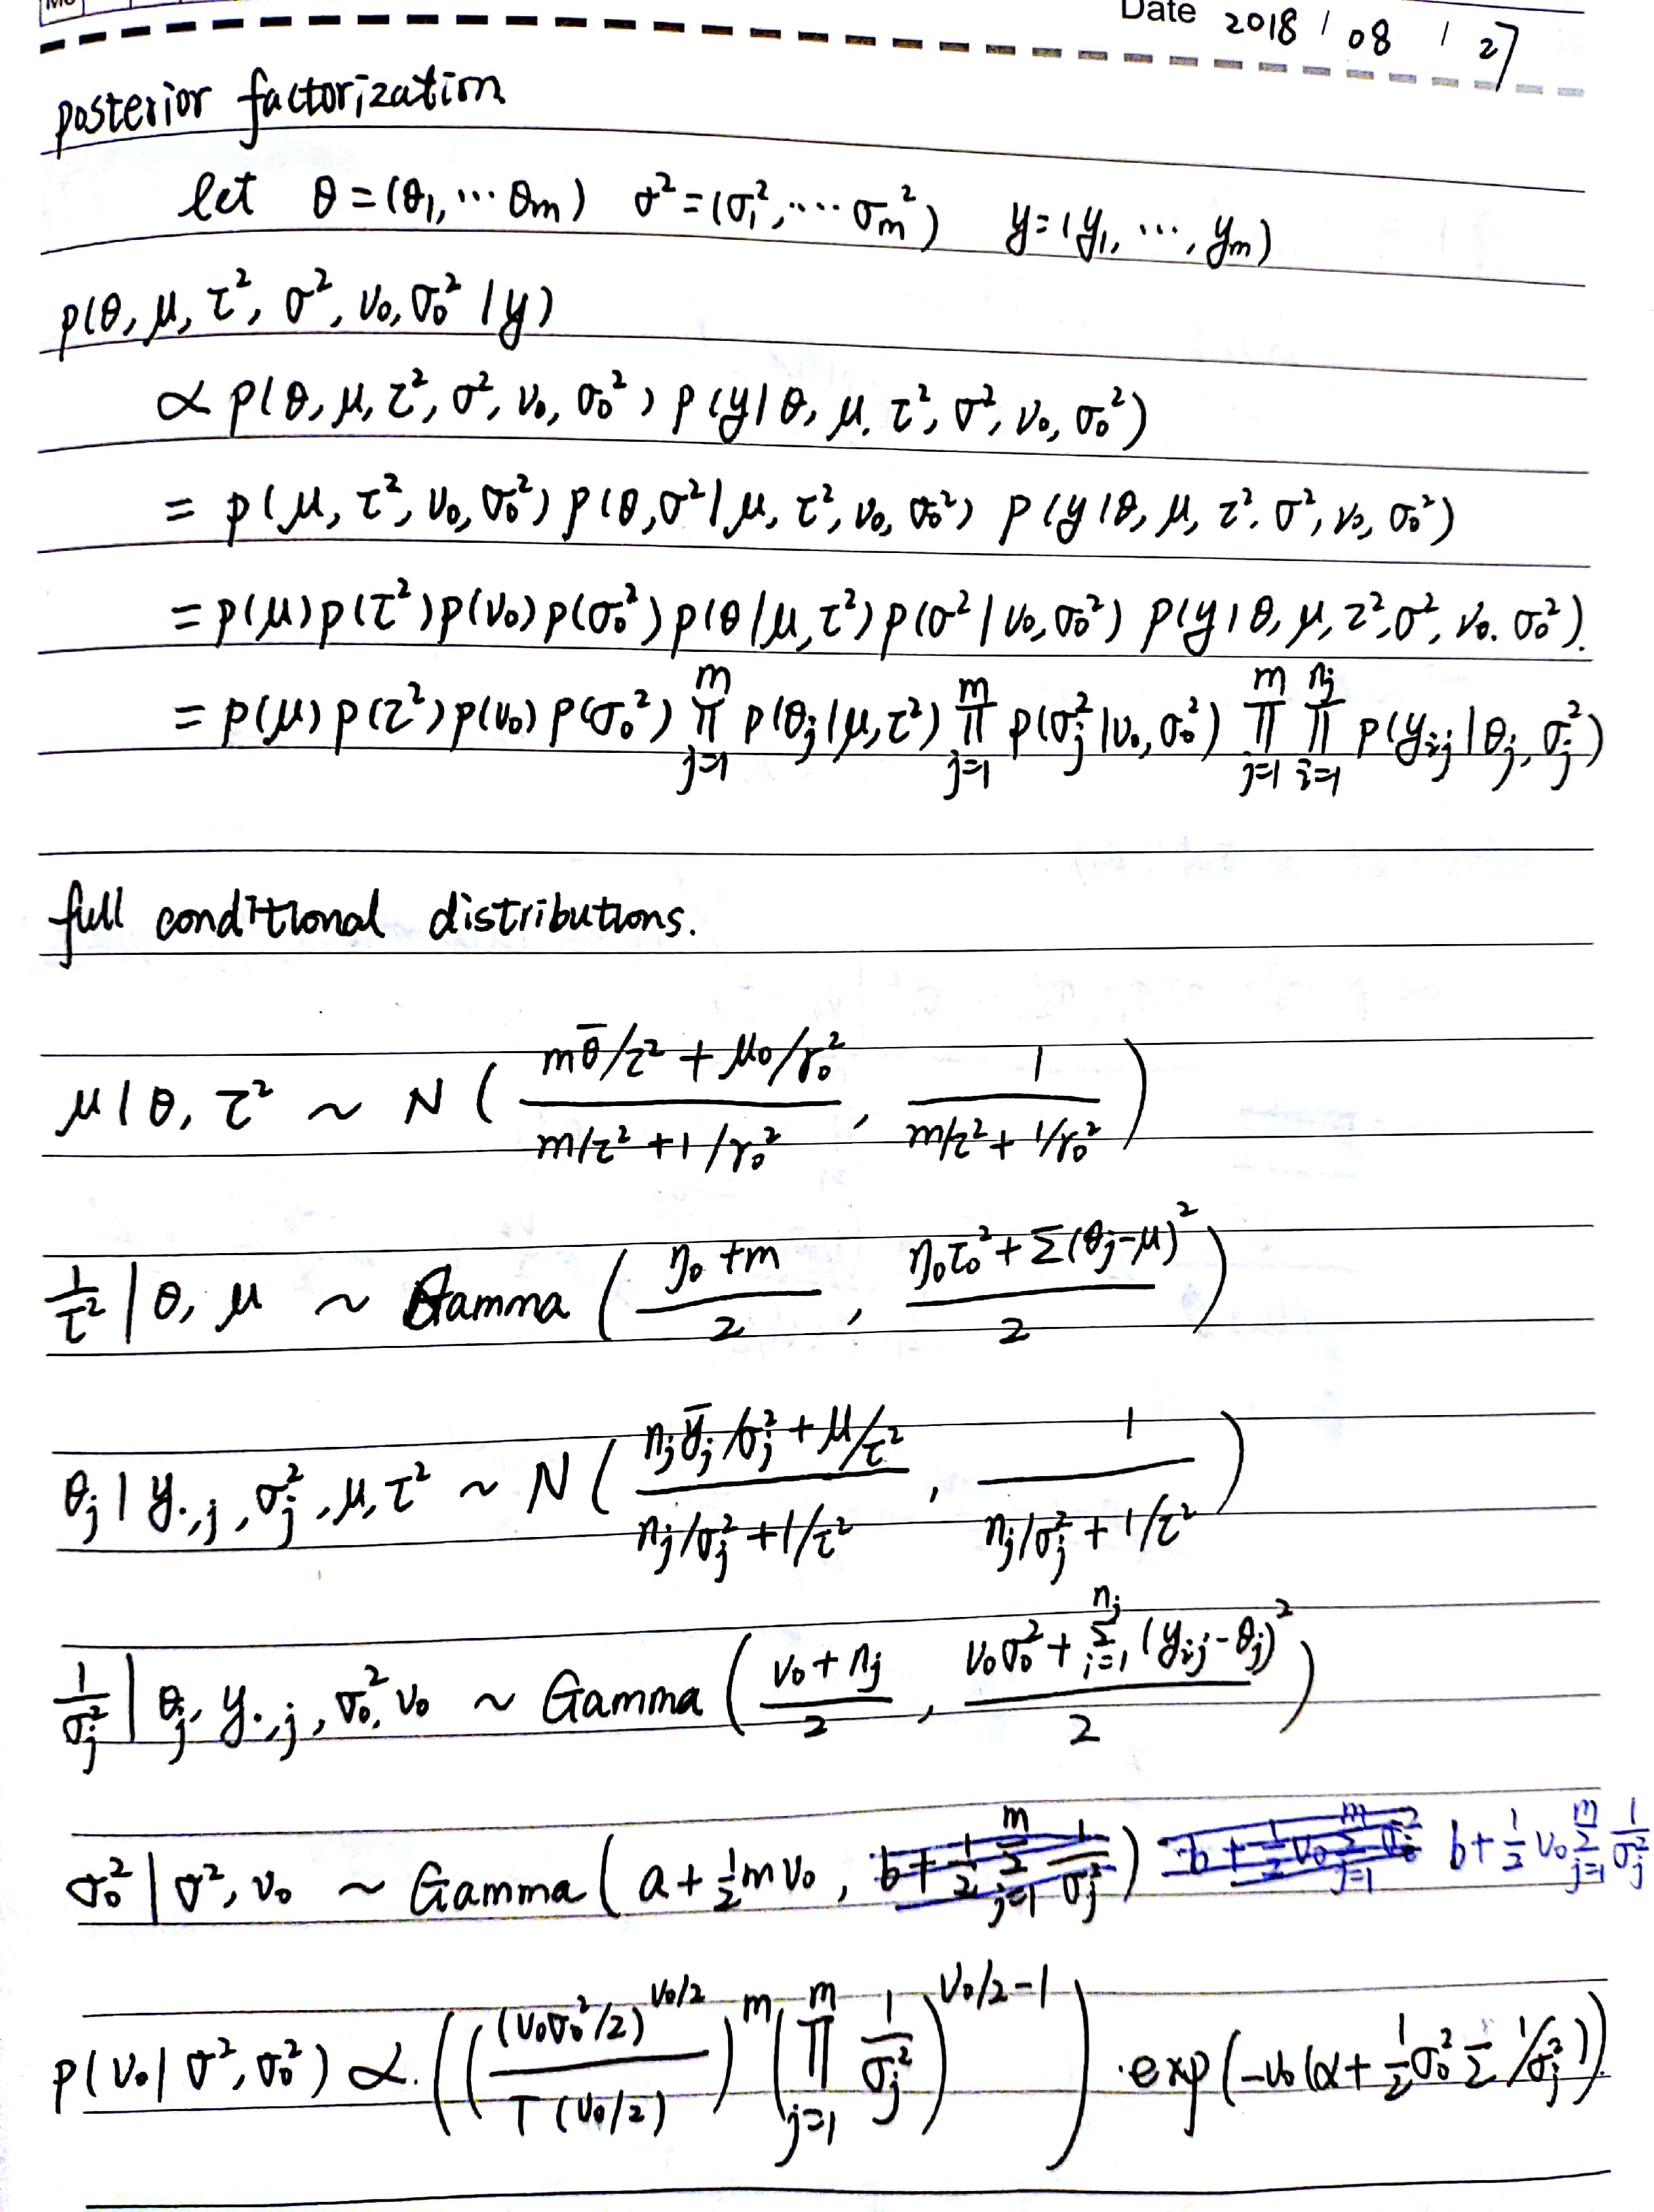 Date 2018 / 08 / 27
posterior factorization
let θ = (θ₁, ⋯ θm) σ² = (σ₁², ⋯⋅ σm²) y = (y₁, ⋯, ym)
p(θ, μ, τ², σ², ν₀, σ₀² | y)
∝ p(θ, μ, τ², σ², ν₀, σ₀²) p(y | θ, μ, τ², σ², ν₀, σ₀²)
= p(μ, τ², ν₀, σ₀²) p(θ, σ² | μ, τ², ν₀, σ₀²) p(y | θ, μ, τ², σ², ν₀, σ₀²)
= p(μ) p(τ²) p(ν₀) p(σ₀²) p(θ | μ, τ²) p(σ² | ν₀, σ₀²) p(y | θ, μ, τ², σ², ν₀, σ₀²).
= p(μ) p(τ²) p(ν₀) p(σ₀²) ∏_{j=1}^{m} p(θ_j | μ, τ²) ∏_{j=1}^{m} p(σ_j² | ν₀, σ₀²) ∏_{j=1}^{m} ∏_{i=1}^{n_j} p(y_{ij} | θ_j, σ_j²)
full conditional distributions.
μ | θ, τ² ~ N ( (mθ̄/τ² + μ₀/γ₀²) / (m/τ² + 1/γ₀²), 1 / (m/τ² + 1/γ₀²) )
1/τ² | θ, μ ~ Gamma ( (η₀ + m)/2, (η₀τ₀² + Σ(θ_j - μ)²)/2 )
θ_j | y_{·,j}, σ_j², μ, τ² ~ N ( (n_j ȳ_j/σ_j² + μ/τ²) / (n_j/σ_j² + 1/τ²), 1 / (n_j/σ_j² + 1/τ²) )
1/σ_j² | θ_j, y_{·,j}, σ₀², ν₀ ~ Gamma ( (ν₀ + n_j)/2, (ν₀σ₀² + Σ_{i=1}^{n_j} (y_{ij} - θ_j)²)/2 )
σ₀² | σ², ν₀ ~ Gamma ( a + ½mν₀, b + ½ Σ_{j=1}^{m} 1/σ_j² ) b + ½ν₀ Σ_{j=1}^{m} σ_j² b + ½ν₀ Σ_{j=1}^{m} 1/σ_j²
p(ν₀ | σ², σ₀²) ∝. ( ( (ν₀σ₀²/2)^{ν₀/2} / Γ(ν₀/2) )^m ( ∏_{j=1}^{m} 1/σ_j² )^{ν₀/2-1} ) · exp(-ν₀(α + ½σ₀² Σ 1/σ_j²)).